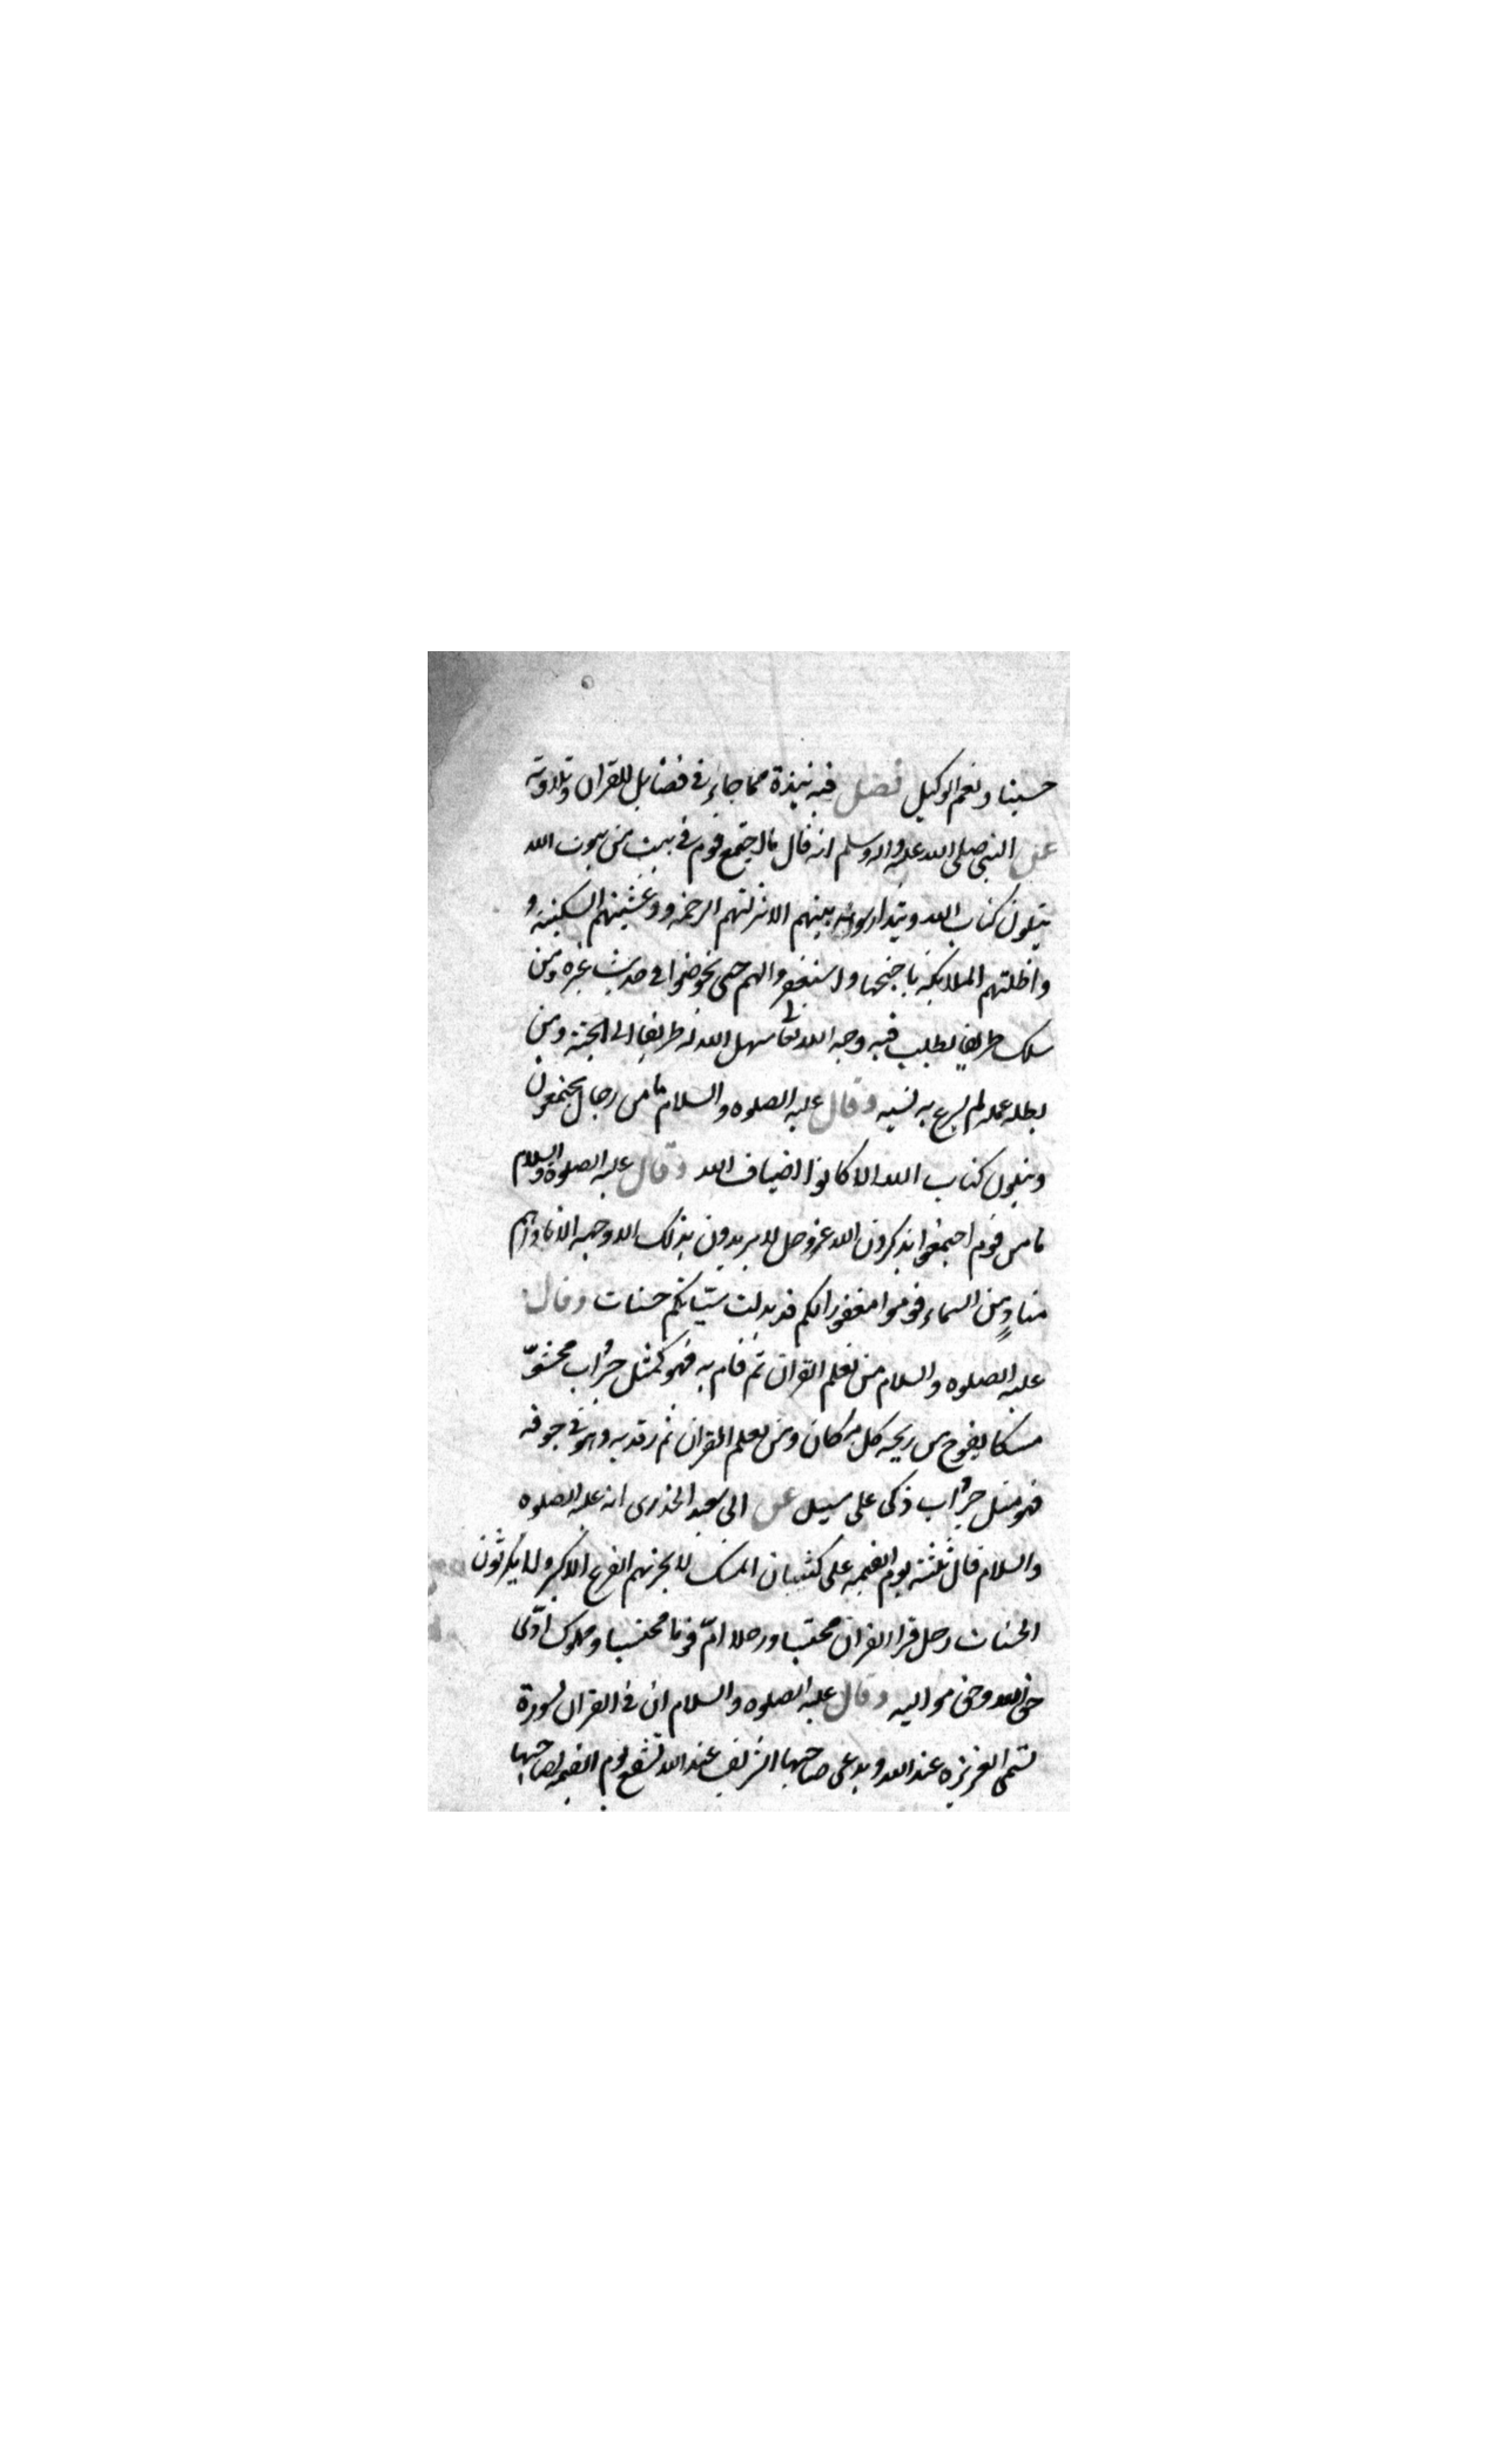 حسبنا ونعم الوكيل فصل فيه نبذة مما جاء في فضايل القران وتلاوته
عن النبي صلى الله عليه واله وسلم انه قال ما اجتمع قوم في بيت من بيوت الله
يتلون كتاب الله ويتدارسونه بينهم الا نزلتهم الرحمه وغشيتهم السكينه و
واظلتهم الملايكه باجنحها واستغفروا لهم حتى يخوضوا في حديث غيره ومن
سلك طريقا يطلب فيه وجه الله تعالى سهل الله له طريقا الى الجنة ومن
يبطله عمله لم يسرع به نسبه وقال عليه الصلوه والسلام ما من رجال يجتمعون
ويتلون كتاب الله الا كانوا اضياف الله وقال عليه الصلوة والسلام
ما من قوم اجتمعوا يذكرون الله عز وجل لا يريدون بذلك الا وجهه الا ناداهم
مناد من السماء قوموا مغفورا لكم قد بدلت سيّاتكم حسنات وقال
عليه الصلوه والسلام من تعلم القران ثم قام به فهو كمثل جراب محشوّ
مسكا يفوح من ريحه كل مكان ومن تعلم القران ثم رقد به وهو في جوفه
فهو مثل جراب ذكى على سيل عن ابي سعيد الخدري انه عليه الصلوه
والسلام قال ثلثة يوم القيمه على كثبان المسك لا يحزنهم الفزع الاكبر ولا يكرثون
الحسنات رجل قرا القران محتسبا ورجلا امّ قوما محتسبا ومملوك ادّى
حق الله وحق مواليه وقال عليه الصلوه والسلام ان في القران لسورة
تسمى العزيزه عند الله ويدعى صاحبها الشريف عند الله تشفع يوم القيمه لصاحبها